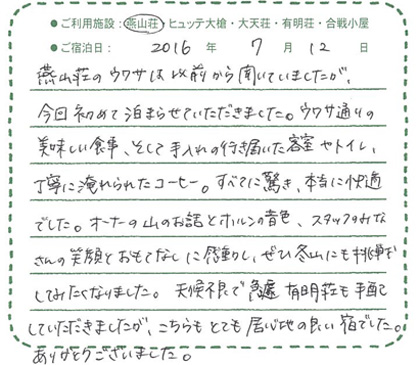 ●ご利用施設：燕山荘・ヒュッテ大槍・大天荘・有明荘・合戦小屋
●ご宿泊日： 2016 年 7 月 12 日
燕山荘のウワサは以前から聞いていましたが、
今回初めて泊まらせていただきました。ウワサ通りの
美味しい食事、そして手入れの行き届いた客室やトイレ、
丁寧に淹れられたコーヒー。すべてに驚き、本当に快適
でした。オーナーの山のお話とホルンの音色、スタッフのみな
さんの笑顔とおもてなしに感動し、ぜひ冬山にも挑戦を
してみたくなりました。天候不良で急遽 有明荘も手配
していただきましたが、こちらもとても居心地の良い宿でした。
ありがとうございました。